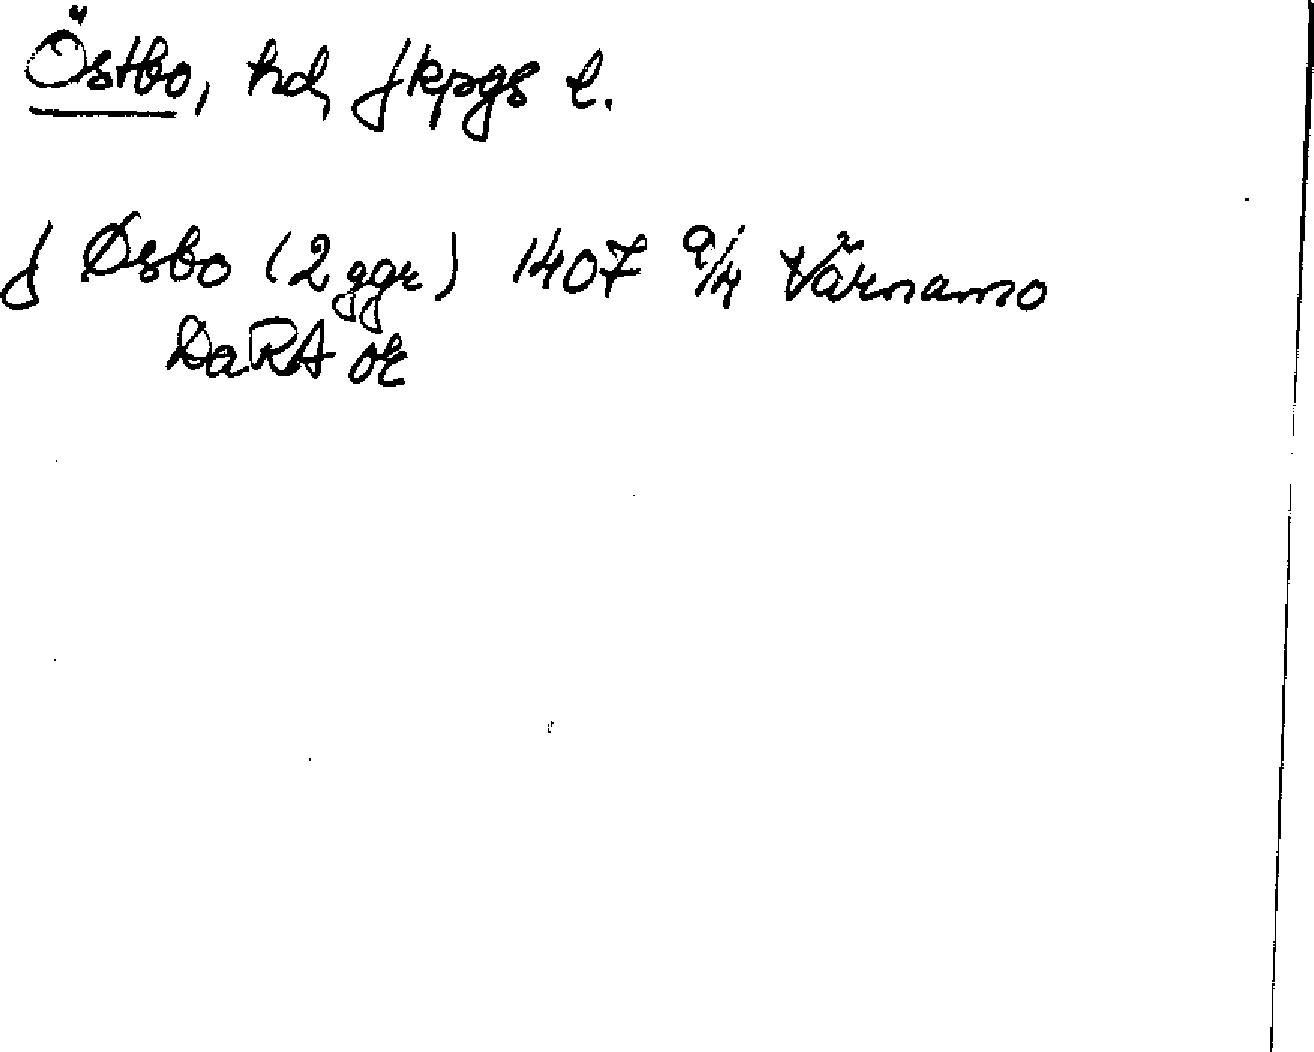 Östbo, hd, Jkpgs l.
J Østbo (2 ggr) 1407 9/4 Värnamo
DaRA or